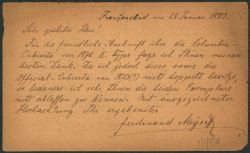 Franzensbad am 28. Januar 1892
Sehr geehrter Herr
Für die freundliche Auskunft über die Columbia-
Cubierta von 1890 II. Type sage ich Ihnen meinen
besten Dank. Da ich jedoch diese sowie die
Official-Cubierta von 1890(?) nicht doppelt besitze,
so bedauere ich sehr Ihnen die beiden Exemplare
nicht ablassen zu können. Mit ausgezeichneter
Hochachtung. Ihr ergebenster
Ferdinand